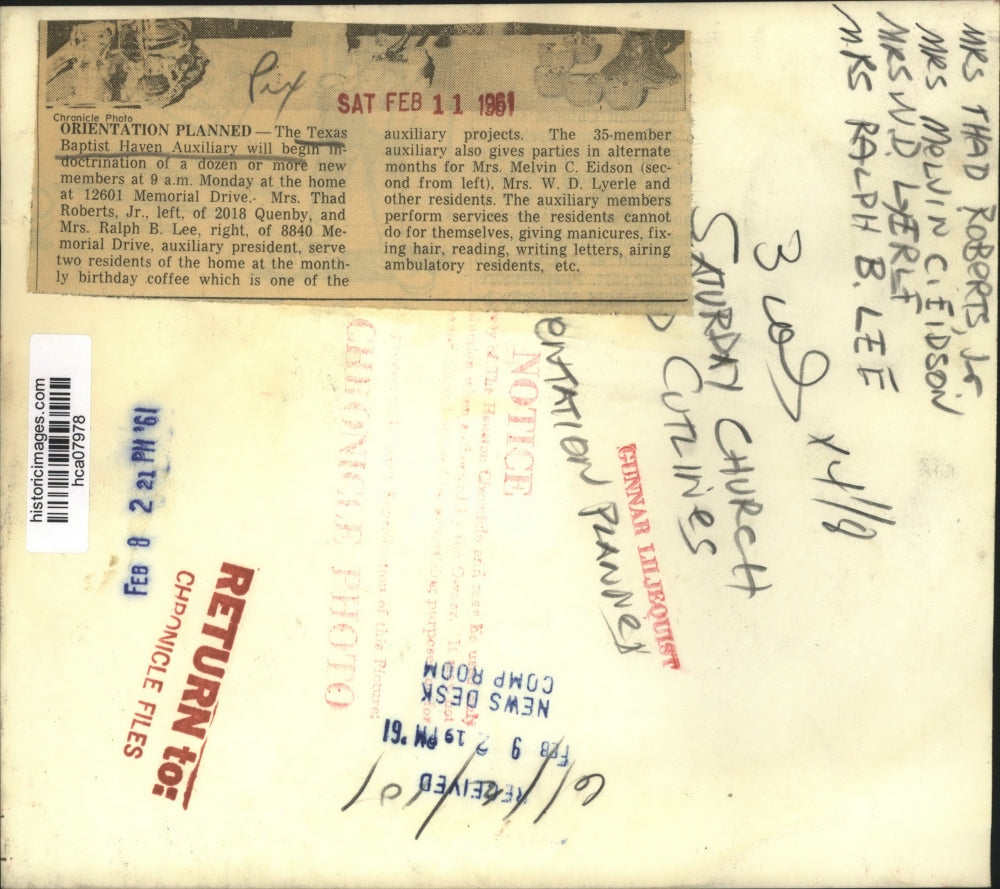 Pix
SAT FEB 11 1961
Chronicle Photo
ORIENTATION PLANNED — The Texas
Baptist Haven Auxiliary will begin in-
doctrination of a dozen or more new
members at 9 a.m. Monday at the home
at 12601 Memorial Drive. Mrs. Thad
Roberts, Jr., left, of 2018 Quenby, and
Mrs. Ralph B. Lee, right, of 8840 Me-
morial Drive, auxiliary president, serve
two residents of the home at the month-
ly birthday coffee which is one of the
auxiliary projects. The 35-member
auxiliary also gives parties in alternate
months for Mrs. Melvin C. Eidson (sec-
ond from left), Mrs. W. D. Lyerle and
other residents. The auxiliary members
perform services the residents cannot
do for themselves, giving manicures, fix-
ing hair, reading, writing letters, airing
ambulatory residents, etc.
MRS THAD ROBERTS, Jr
MRS MELVIN C. EIDSON
MRS W.D. LYERLE
MRS RALPH B. LEE
3 col
x 4/8
SATURDAY CHURCH
CUTLINES
ENTATION PLANNED
GUNNAR LILJEQUIST
NOTICE
of The Houston Chronicle
of the Picture.
CHRONICLE PHOTO
historicimages.com
hca07978
FEB 8 2 21 PM '61
RETURN to:
CHRONICLE FILES
RECEIVED
FEB 9 2 19 PM '61
NEWS DESK
COMP ROOM